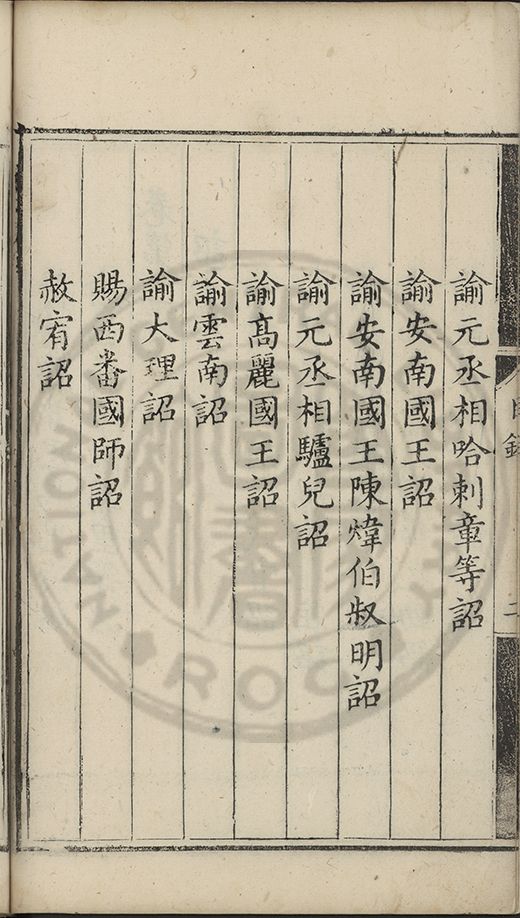 諭元丞相哈剌章等詔
諭安南國王詔
諭安南國王陳煒伯叔明詔
諭元丞相驢兒詔
諭高麗國王詔
諭雲南詔
諭大理詔
賜西番國師詔
赦宥詔